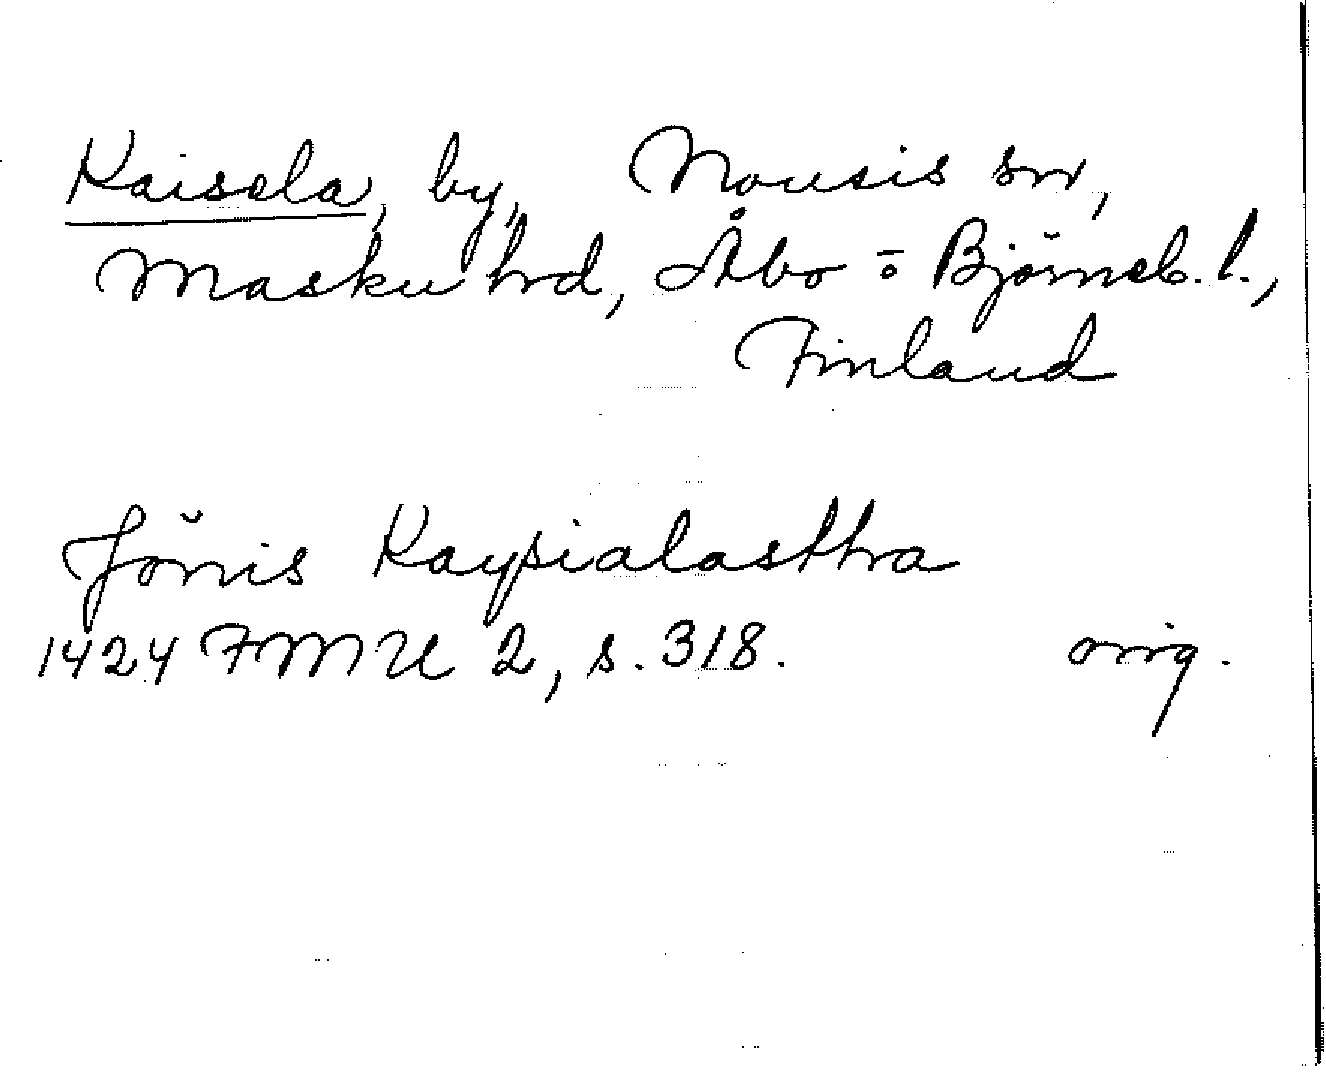 Kaisela, by, Nousis sn,
Masku hrd, Åbo o Björneb. l.,
Finland
Jönis Kaysialasthra
1424 FMU 2, s. 318. orig.